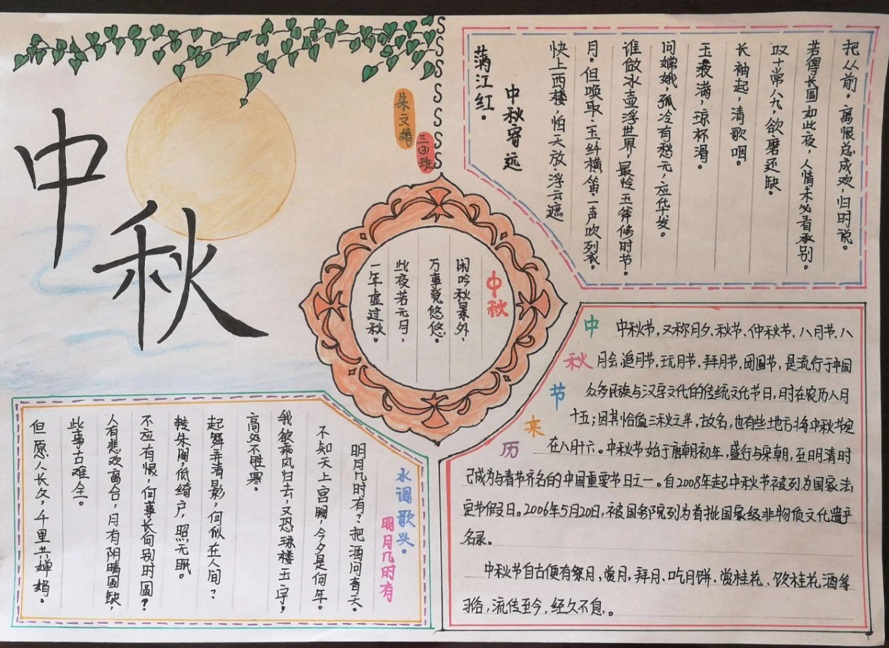 中秋
朱文婧
三(3)班
满江红·
中秋寄远
快上西楼,怕天放浮云遮
月。但唤取、玉纤横笛,一声吹裂。
谁做冰壶浮世界,最怜玉斧修时节。
问嫦娥,孤冷有愁无,应华发。
玉液满,琼杯滑。
长袖起,清歌咽。
叹十常八九,欲磨还缺。
若得长圆如此夜,人情未必看承别。
把从前,离恨总成欢,归时说。
中秋
闲吟秋景外,
万事觉悠悠。
此夜若无月,
一年虚过秋。
水调歌头。
明月几时有
明月几时有?把酒问青天。
不知天上宫阙,今夕是何年。
我欲乘风归去,又恐琼楼玉宇,
高处不胜寒。
起舞弄清影,何似在人间?
转朱阁,低绮户,照无眠。
不应有恨,何事长向别时圆?
人有悲欢离合,月有阴晴圆缺
此事古难全。
但愿人长久,千里共婵娟。
中秋节来历
中秋节,又称月夕、秋节、仲秋节、八月节、八
月会、追月节、玩月节、拜月节、团圆节,是流行于中国
众多民族与汉字文化的传统文化节日,时在农历八月
十五;因其恰值三秋之半,故名,也有些地方将中秋节定
在八月十六。中秋节始于唐朝初年,盛行与宋朝,至明清时
已成为与春节齐名的中国重要节日之一。自2008年起中秋节被列为国家法
定节假日。2006年5月20日,被国务院列为首批国家级非物质文化遗产
名录。
中秋节自古便有祭月,赏月,拜月、吃月饼、赏桂花、饮桂花酒等
习俗,流传至今,经久不息。